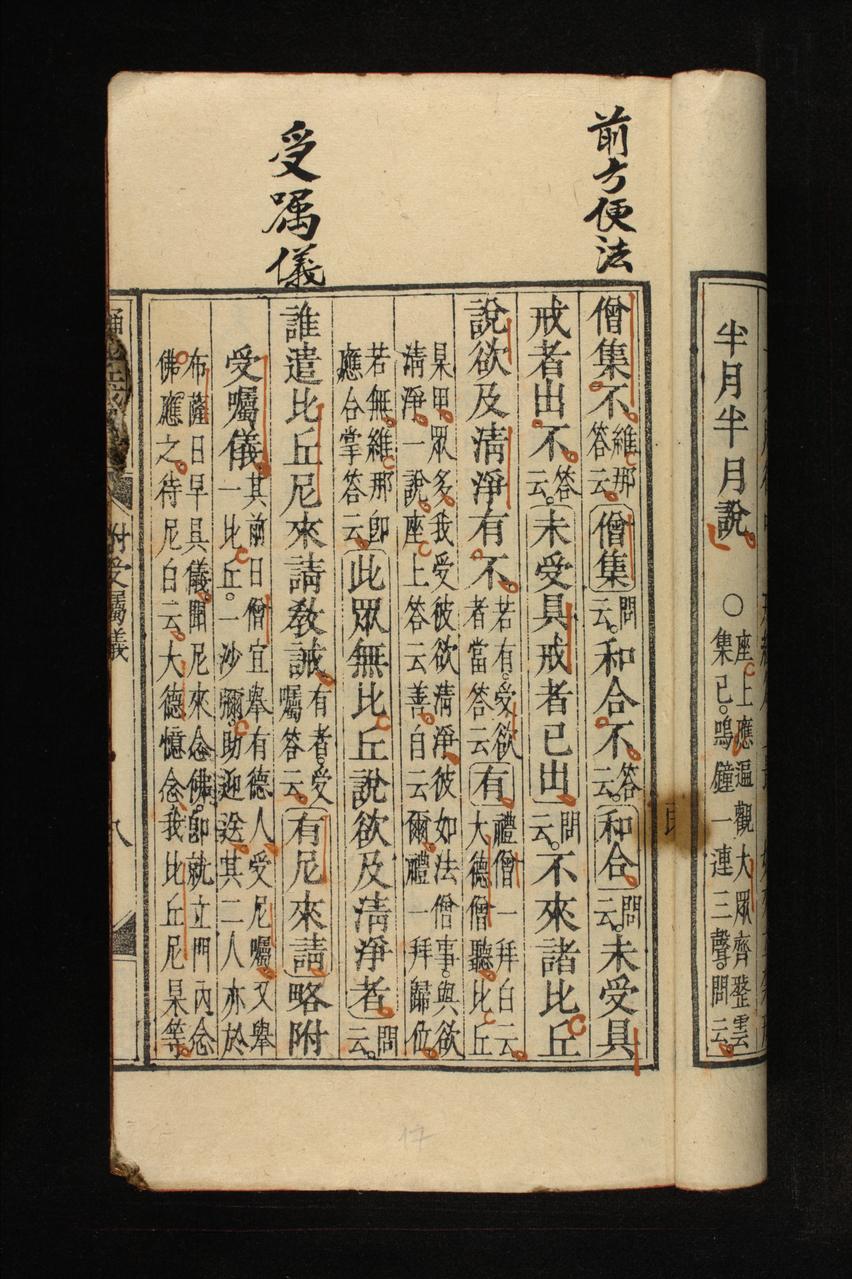 半月半月說
○
座上應遍觀大眾齊整云
集已。鳴鐘一連三聲。問云。
前方便法
受囑儀
僧集不。維那答云。僧集問云。和合不。答云。和合。問云。未受具
戒者出不。答云。未受具戒者已出問云。不來諸比丘
說欲及淸淨有不。若有。受欲者當答云有。禮僧一拜白云。大德僧聽。比丘
某甲。眾多。我受彼欲淸淨。彼如法僧事。與欲
淸淨。一說。座上答云善。白云爾。禮一拜歸位。
若無。維那卽
應合掌答云。此眾無比丘說欲及淸淨者。問云。
誰遣比丘尼來請敎誡。有者。受囑答云。有尼來請。略附
受囑儀其前日僧宜舉有德人。受尼囑。又舉
一比丘。一沙彌。助迎送。其二人亦於
布薩日早具儀。聞尼來念佛。卽就立門內念
佛應之。待尼白云。大德憶念。我比丘尼某等。
附受囑儀
八
17